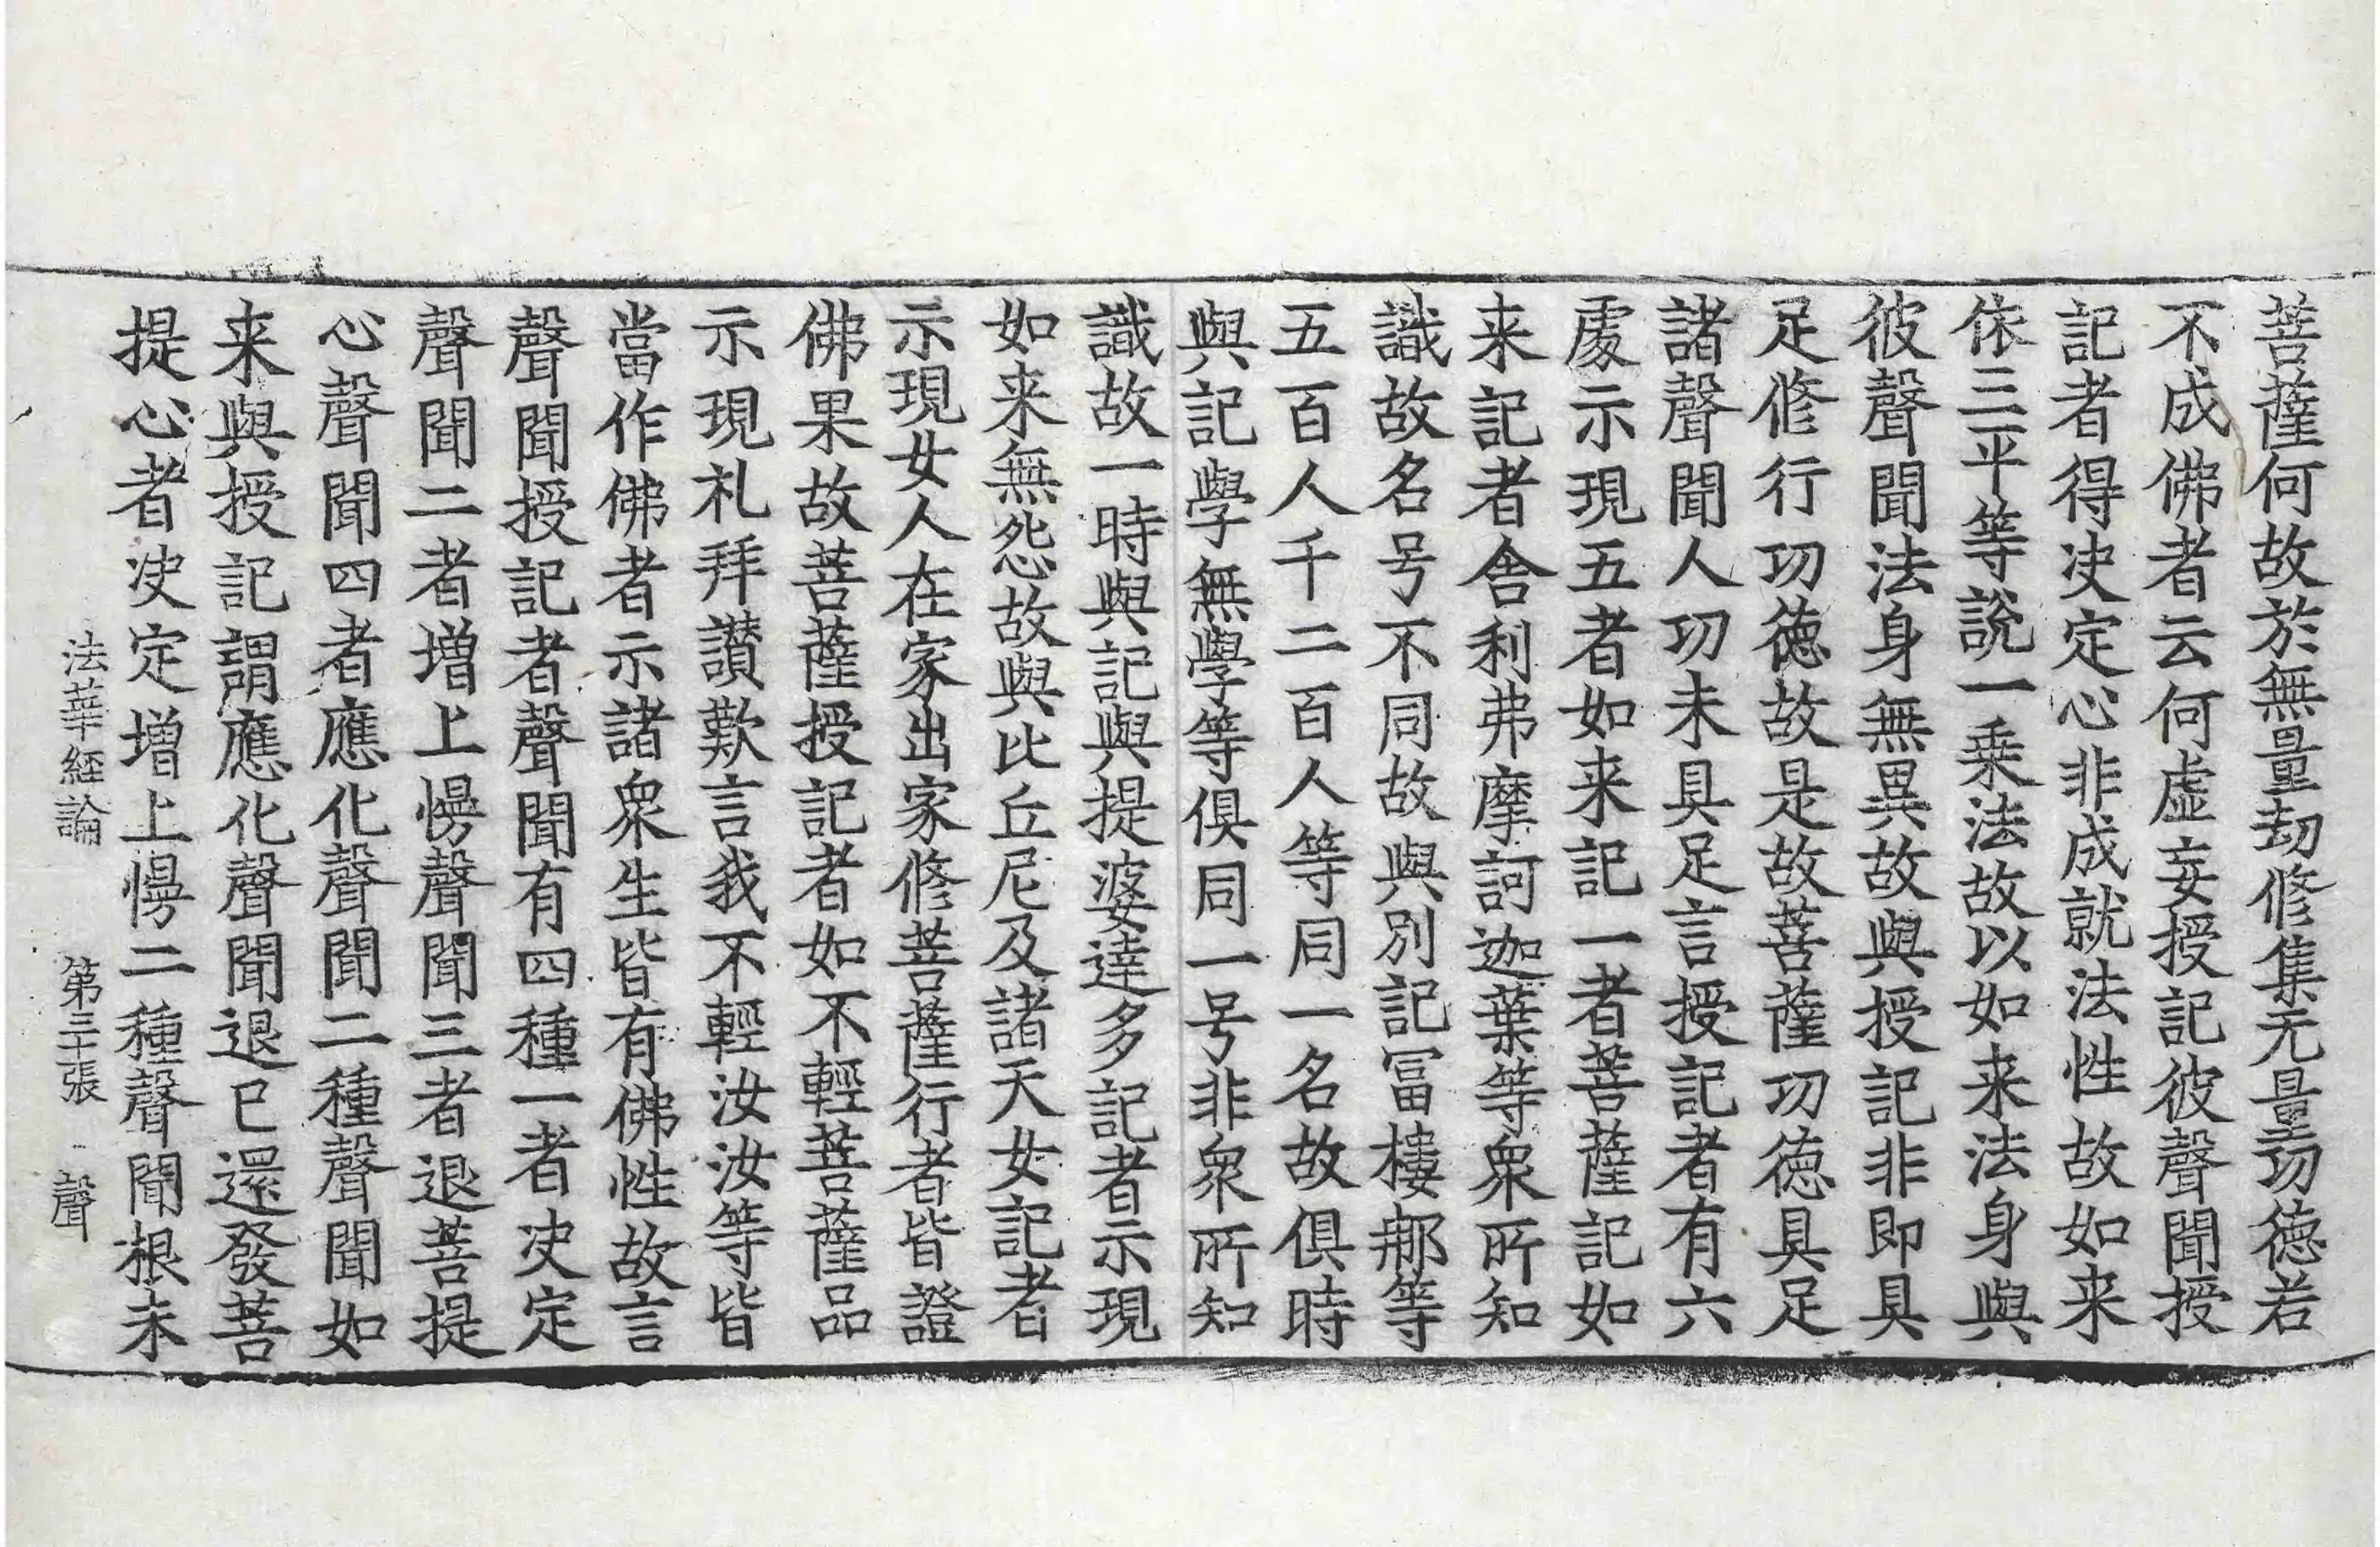 菩薩何故於無量劫修集无量功德若
不成佛者云何虛妄授記彼聲聞授
記者得決定心非成就法性故如来
依三平等說一乘法故以如来法身與
彼聲聞法身無異故與授記非即具
足修行功德故是故菩薩功德具足
諸聲聞人功未具足言授記者有六
處示現五者如来記一者菩薩記如
来記者舍利弗摩訶迦葉等衆所知
識故名号不同故與別記冨樓那等
五百人千二百人等同一名故俱時
與記學無學等俱同一号非衆所知
識故一時與記與提婆達多記者示現
如来無怨故與比丘尼及諸天女記者
示現女人在家出家修菩薩行者皆證
佛果故菩薩授記者如不輕菩薩品
示現礼拜讃歎言我不輕汝汝等皆
當作佛者示諸衆生皆有佛性故言
聲聞授記者聲聞有四種一者決定
聲聞二者增上慢聲聞三者退菩提
心聲聞四者應化聲聞二種聲聞如
来與授記謂應化聲聞退已還發菩
提心者決定增上慢二種聲聞根未
法華経論 第三十張 聲